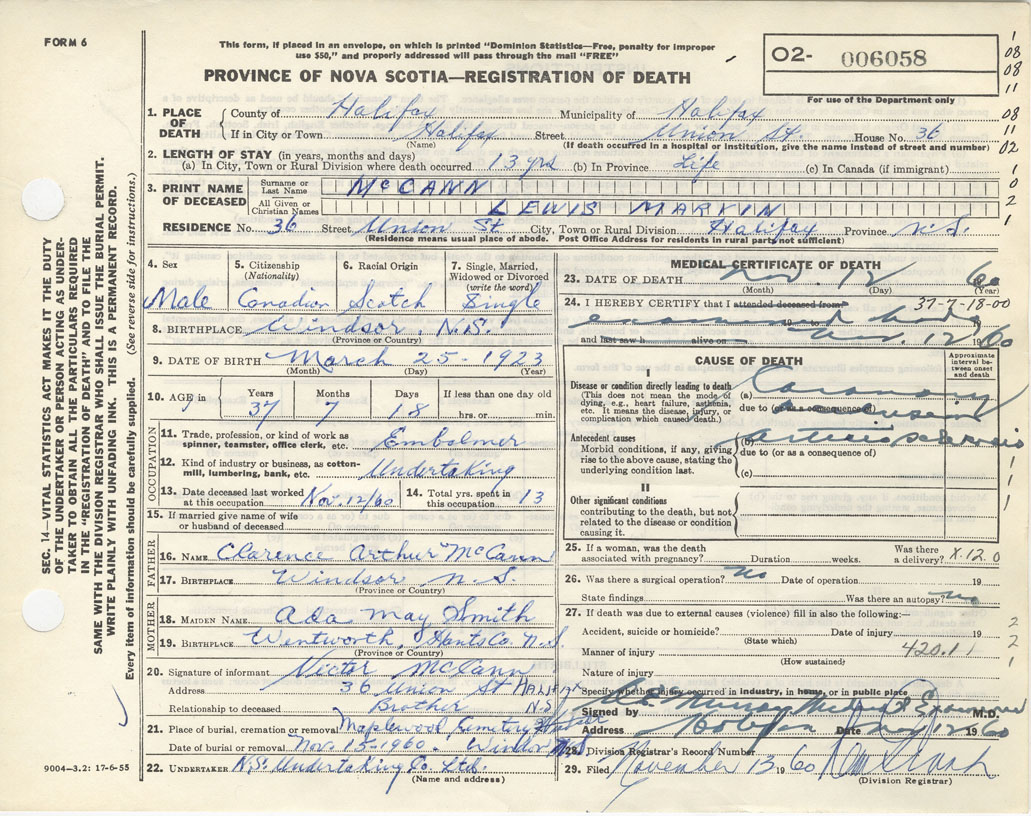 FORM 6
This form, if placed in an envelope, on which is printed "Dominion Statistics—Free, penalty for improper
use $50," and properly addressed will pass through the mail "FREE"
PROVINCE OF NOVA SCOTIA—REGISTRATION OF DEATH
02- 006058
For use of the Department only
1
08
08
11
08
11
02
1
0
2
1
SEC. 14—VITAL STATISTICS ACT MAKES IT THE DUTY
OF THE UNDERTAKER OR PERSON ACTING AS UNDER-
TAKER TO OBTAIN ALL THE PARTICULARS REQUIRED
IN THE "REGISTRATION OF DEATH" AND TO FILE THE
SAME WITH THE DIVISION REGISTRAR WHO SHALL ISSUE THE BURIAL PERMIT.
WRITE PLAINLY WITH UNFADING INK. THIS IS A PERMANENT RECORD.
Every item of information should be carefully supplied. (See reverse side for instructions.)
1. PLACE OF DEATH County of Halifax Municipality of Halifax
If in City or Town Halifax Street Union St. House No. 36
(Name) (If death occurred in a hospital or institution, give the name instead of street and number)
2. LENGTH OF STAY (in years, months and days)
(a) In City, Town or Rural Division where death occurred 13 yrs (b) In Province Life (c) In Canada (if immigrant)
3. PRINT NAME OF DECEASED Surname or Last Name McCANN
All Given or Christian Names LEWIS MARTIN
RESIDENCE No. 36 Street Union St City, Town or Rural Division Halifax Province N.S.
(Residence means usual place of abode. Post Office Address for residents in rural parts not sufficient)
4. Sex 5. Citizenship (Nationality) 6. Racial Origin 7. Single, Married, Widowed or Divorced (write the word)
Male Canadian Scotch Single
8. BIRTHPLACE Windsor, N.S.
(Province or Country)
9. DATE OF BIRTH March 25 - 1923
(Month) (Day) (Year)
10. AGE in Years Months Days If less than one day old
37 7 18 hrs. or min.
OCCUPATION
11. Trade, profession, or kind of work as spinner, teamster, office clerk, etc. Embalmer
12. Kind of industry or business, as cotton-mill, lumbering, bank, etc. Undertaking
13. Date deceased last worked at this occupation Nov. 12/60 14. Total yrs. spent in this occupation 13
15. If married give name of wife or husband of deceased
FATHER
16. NAME Clarence Arthur McCann
17. BIRTHPLACE Windsor N.S.
(Province or Country)
MOTHER
18. MAIDEN NAME Ada May Smith
19. BIRTHPLACE Wentworth, Hants Co. N.S.
(Province or Country)
20. Signature of informant Victor McCann
Address 36 Union St Halifax N.S.
Relationship to deceased Brother
21. Place of burial, cremation or removal Maplewood Cemetery Windsor
Date of burial or removal Nov. 15-1960. Windsor N.S.
22. UNDERTAKER N.S. Undertaking Co. Ltd.
(Name and address)
9004—3.2: 17-6-55
MEDICAL CERTIFICATE OF DEATH
23. DATE OF DEATH Nov. 12 60
(Month) (Day) (Year)
24. I HEREBY CERTIFY that I attended deceased from 37-7-18-00
examined body 19
and last saw h alive on Nov. 12 1960
CAUSE OF DEATH
Approximate interval between onset and death
I
Disease or condition directly leading to death
(This does not mean the mode of dying, e.g., heart failure, asthenia, etc. It means the disease, injury, or complication which caused death.)
(a) Coronary
due to (or as a consequence of)
Antecedent causes
Morbid conditions, if any, giving rise to the above cause, stating the underlying condition last.
(b) arteriosclerosis
due to (or as a consequence of)
(c)
II
Other significant conditions
contributing to the death, but not related to the disease or condition causing it.
25. If a woman, was the death associated with pregnancy? Duration weeks. Was there a delivery? X.12.0
26. Was there a surgical operation? no Date of operation 19
State findings Was there an autopsy? no
27. If death was due to external causes (violence) fill in also the following:—
Accident, suicide or homicide? Date of injury 19
(State which)
Manner of injury 420.1
(How sustained)
Nature of injury
Specify whether injury occurred in industry, in home, or in public place
Signed by Murray Medical Examiner M.D.
Address Date Nov 12 1960
28. Division Registrar's Record Number
29. Filed November 13 1960
(Division Registrar)
1
1
1
1
2
2
1